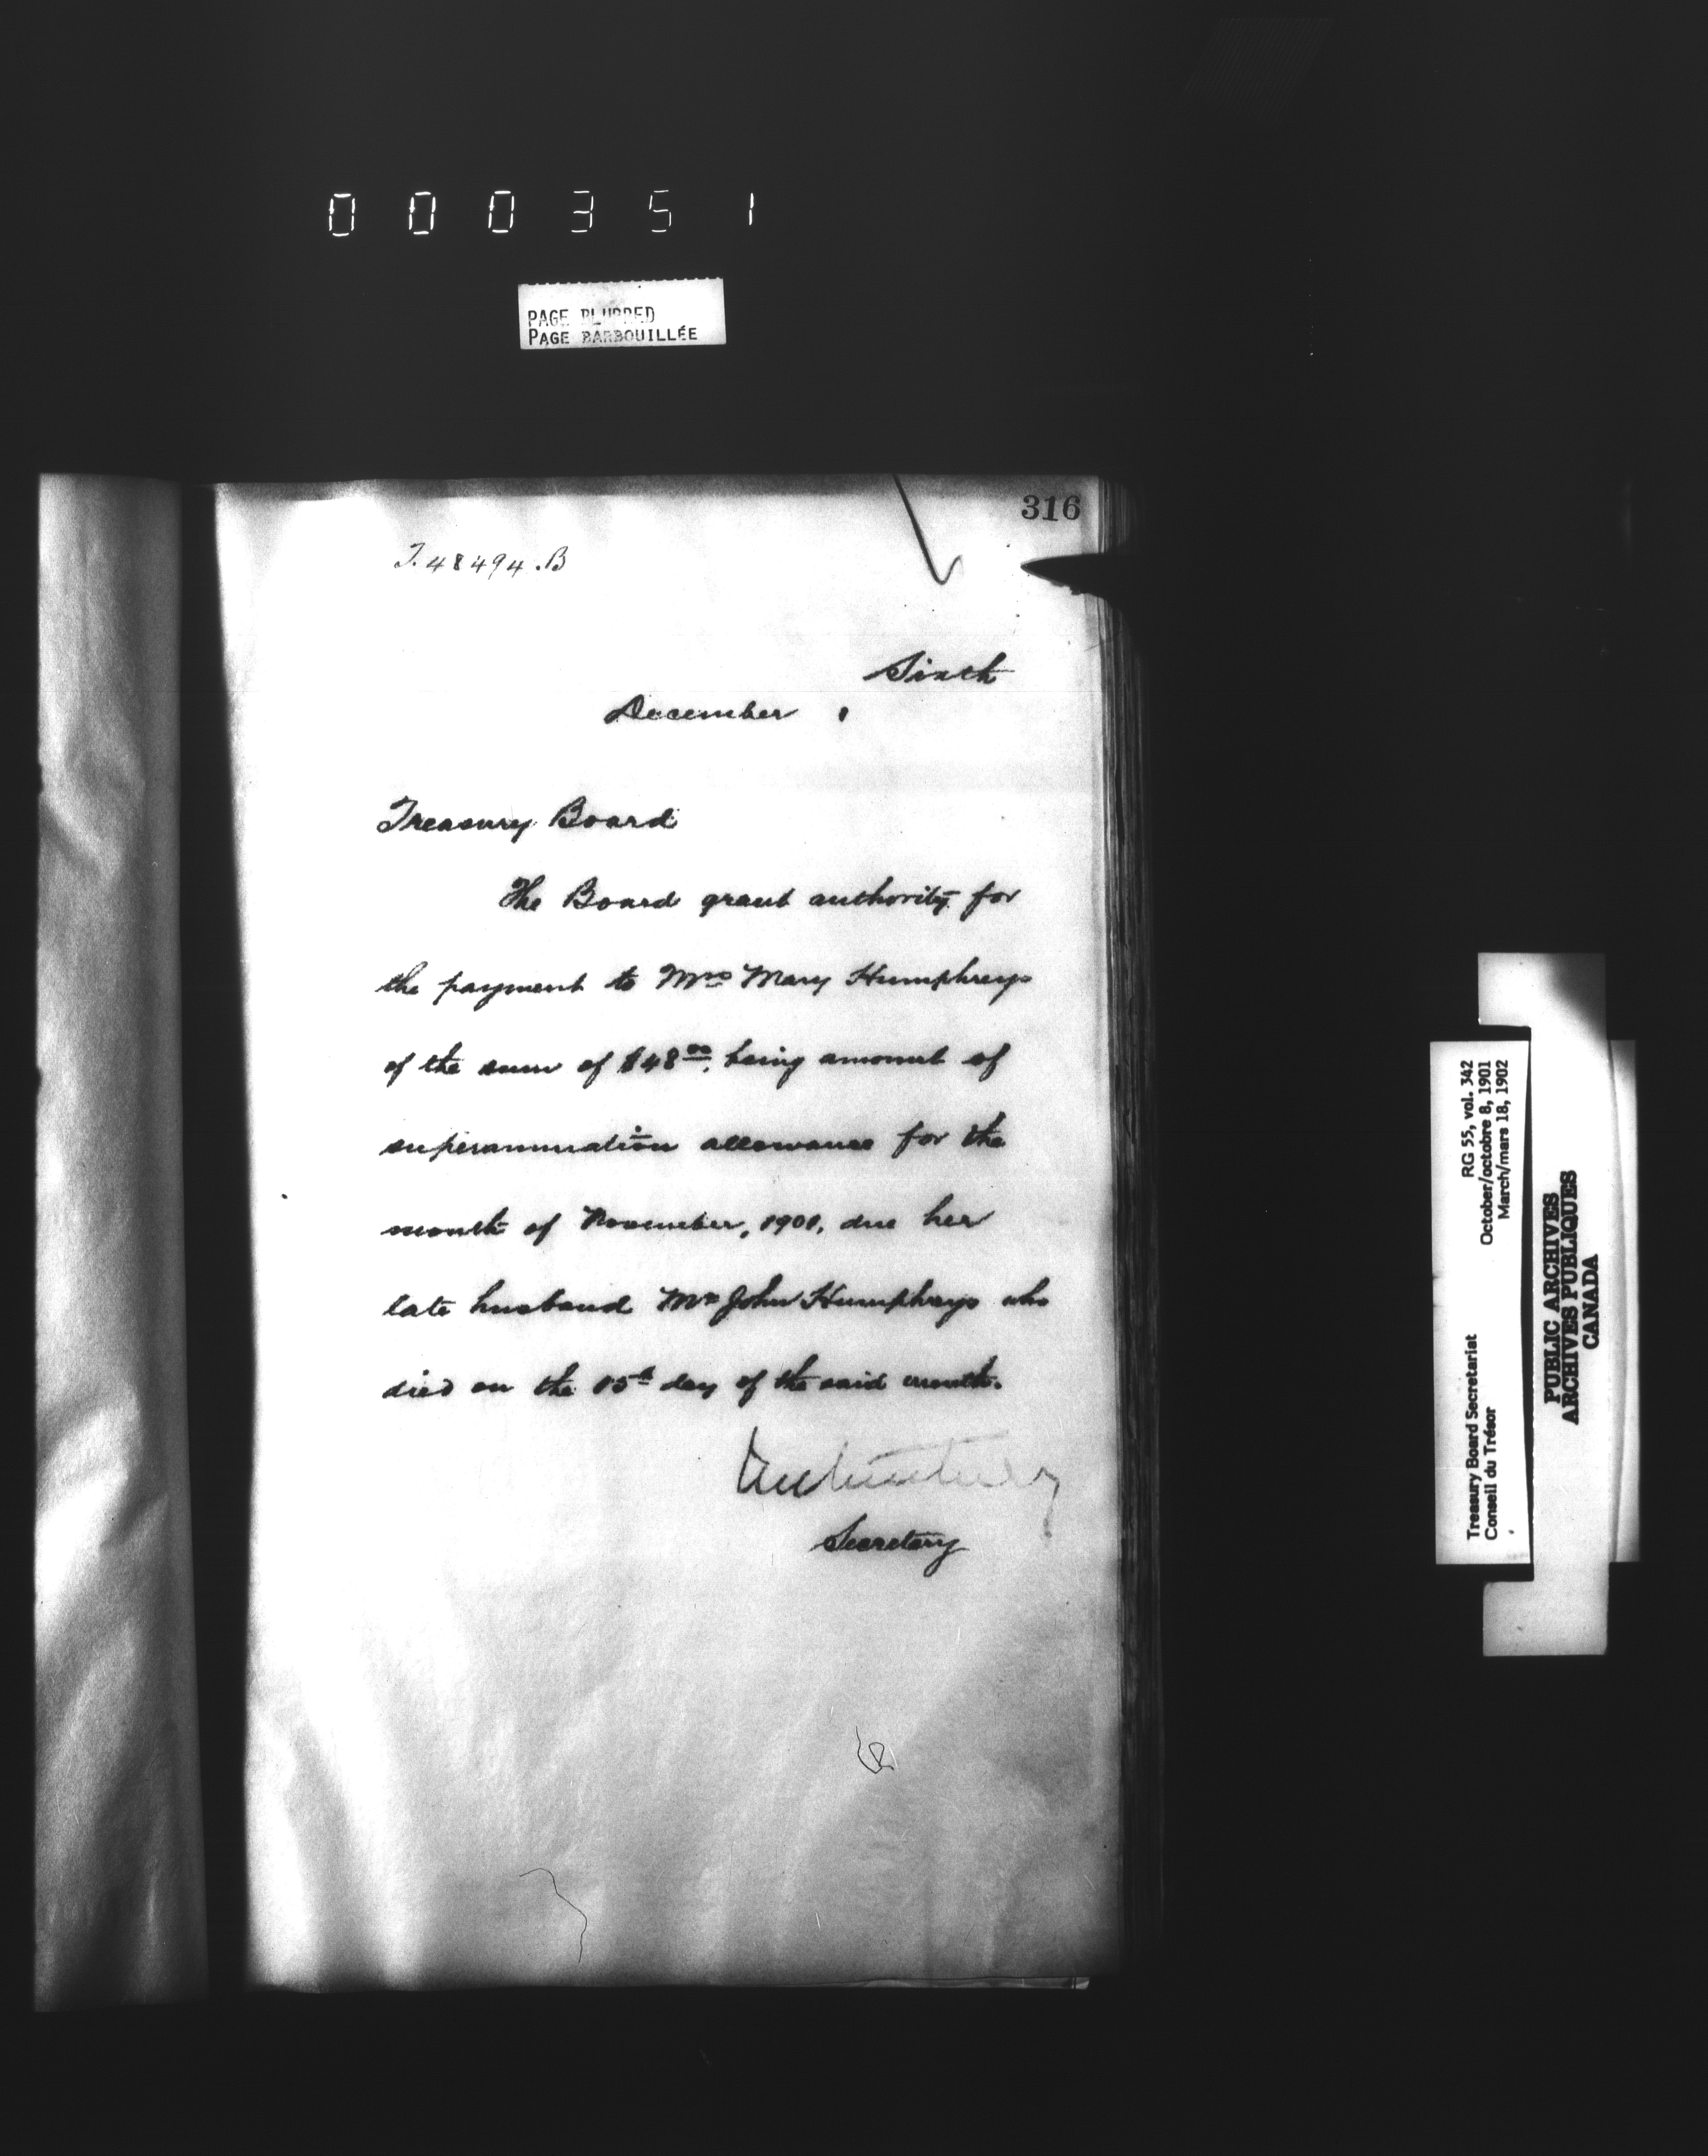 000351
PAGE BLURRED
PAGE BARBOUILLÉE
316
T. 48494.B
Sixth
December 1
Treasury Board
The Board grant authority for
the payment to Mrs Mary Humphreys
of the sum of $48.00, being amount of
superannuation allowance for the
month of November, 1901, due her
late husband Mr John Humphreys who
died on the 15th day of the said month.
Secretary
RG 55, vol. 342
October/octobre 8, 1901
March/mars 18, 1902
Treasury Board Secretariat
Conseil du Trésor
PUBLIC ARCHIVES
ARCHIVES PUBLIQUES
CANADA